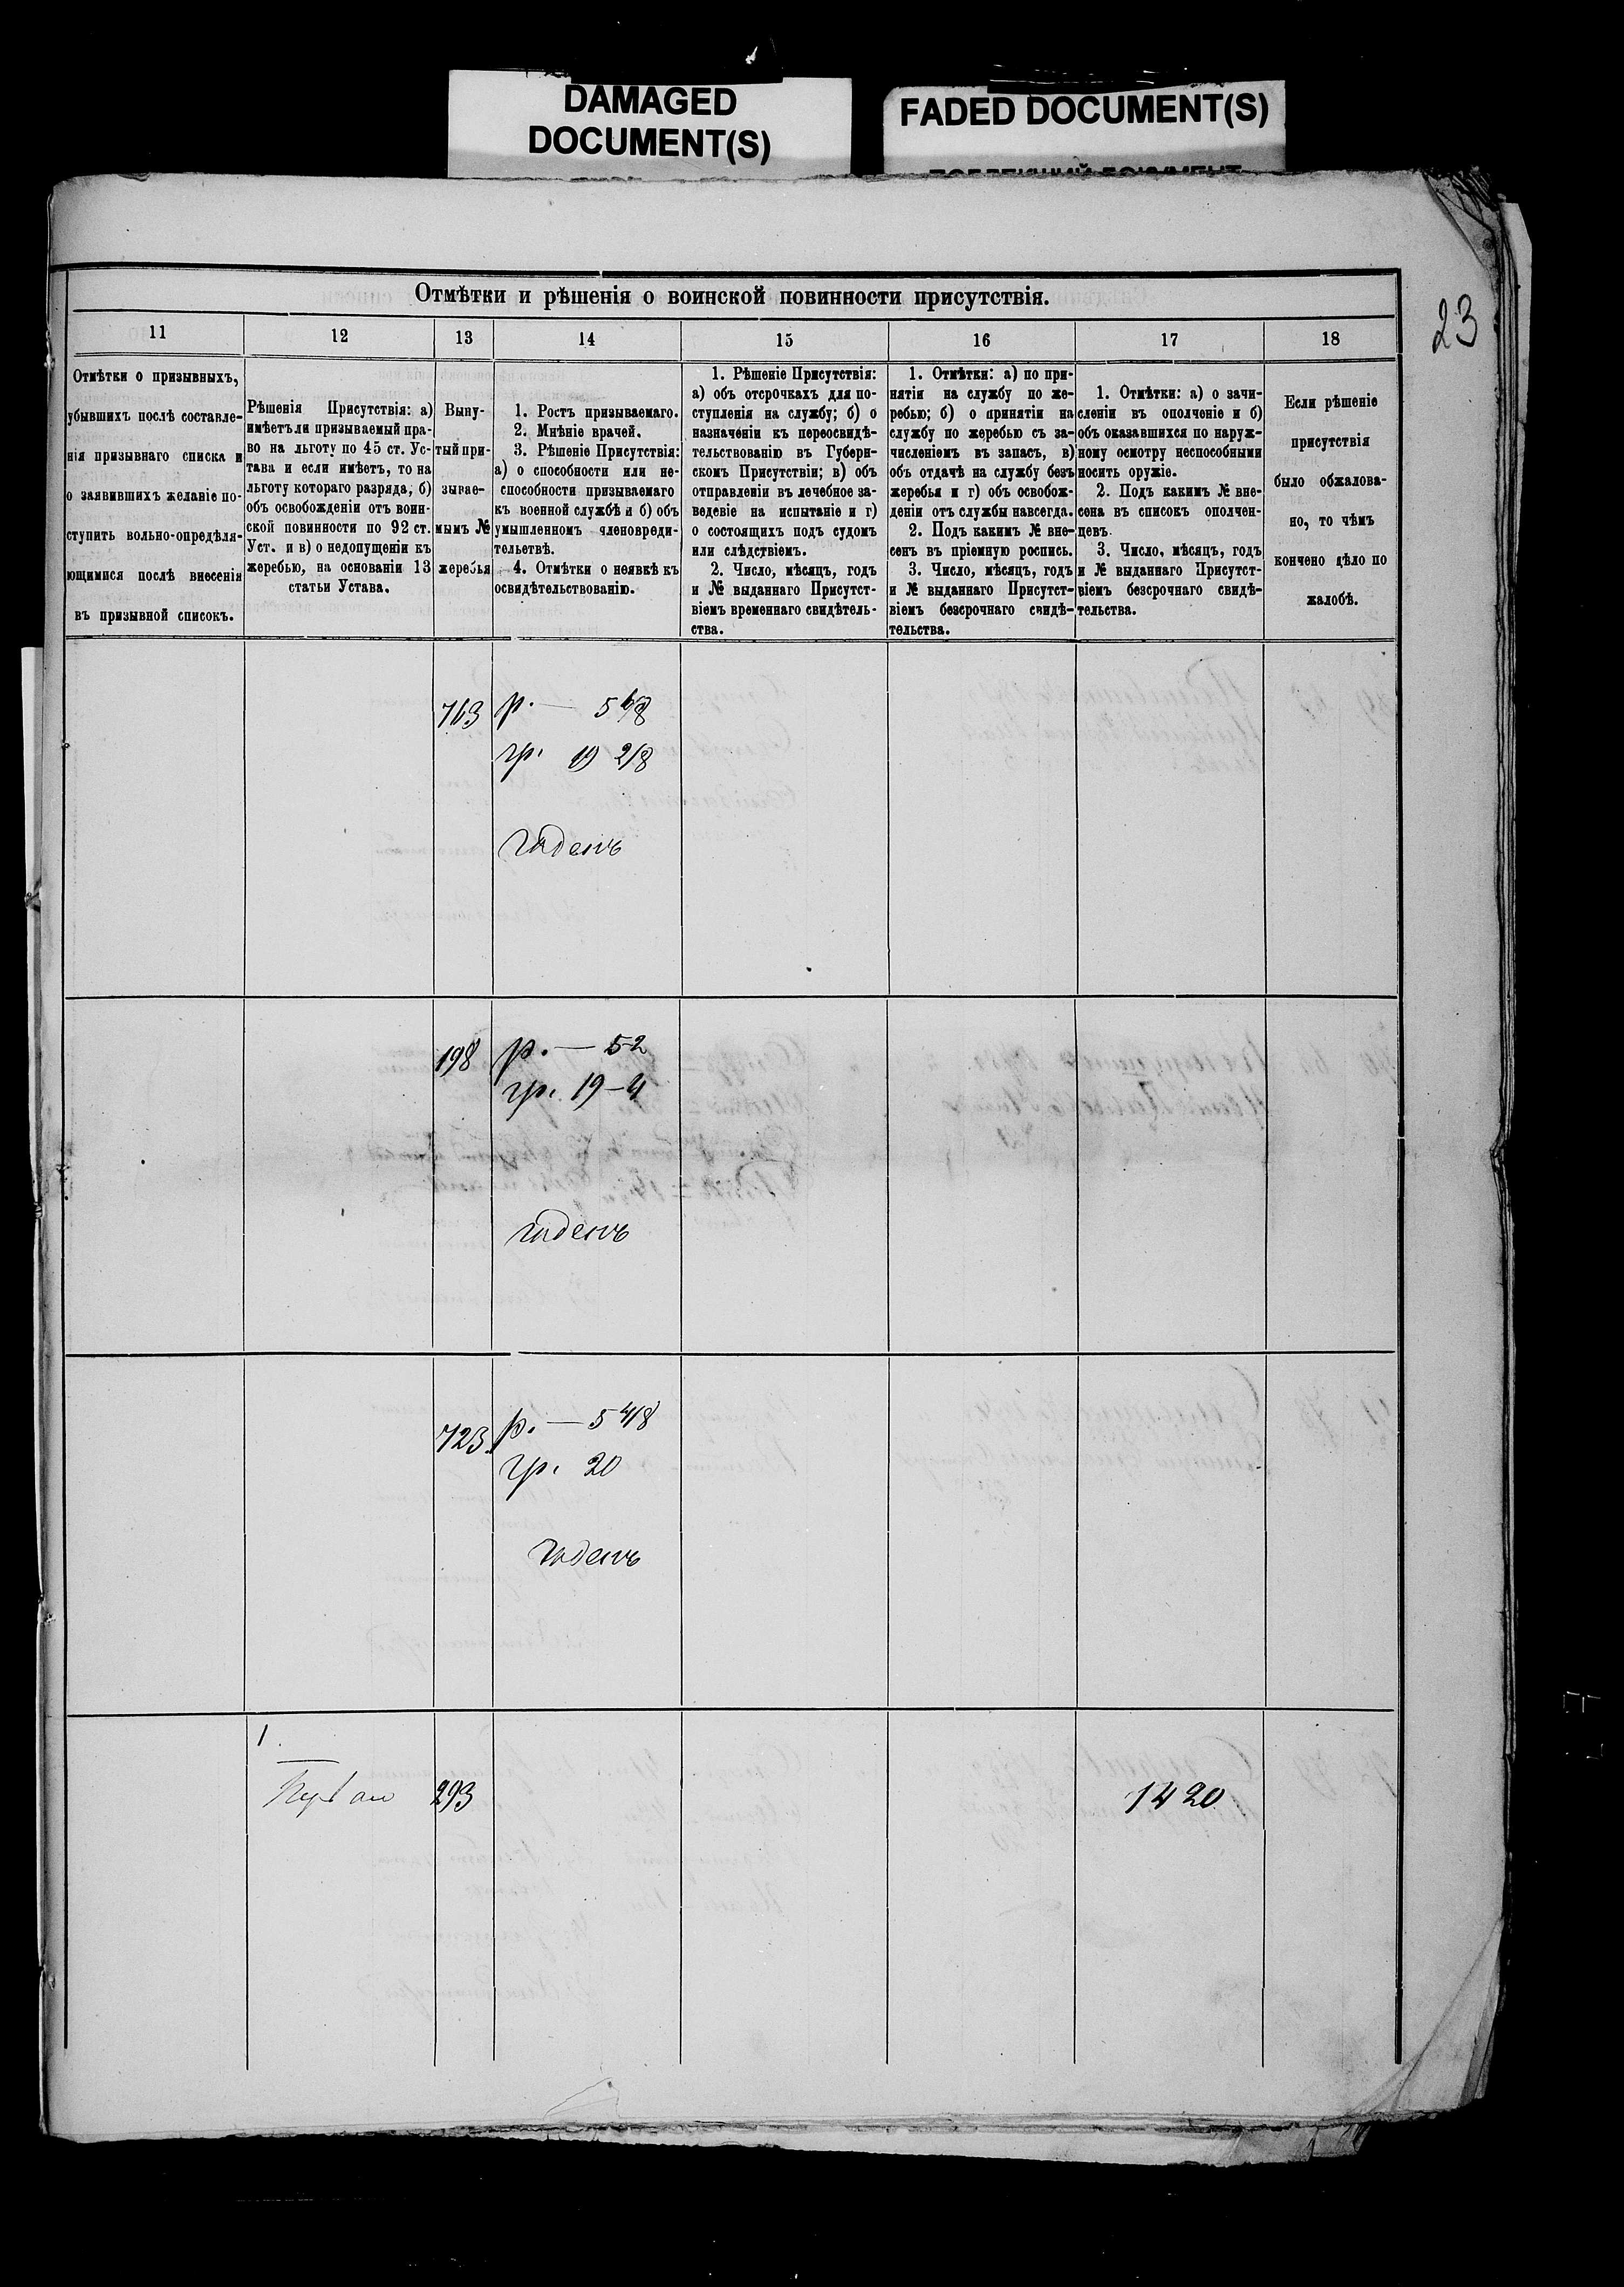 DAMAGED
DOCUMENT(S)
FADED DOCUMENT(S)
23
Отмѣтки и рѣшенія о воинской повинности присутствія.
11
12
13
14
15
16
17
18
Отмѣтки о призывныхъ,
убывшихъ послѣ составле-
нія призывнаго списка и
о заявившихъ желаніе по-
ступить вольно-опредѣля-
ющимися послѣ внесенія
въ призывной списокъ.
Рѣшенія Присутствія: а)
имѣетъ ли призываемый пра-
во на льготу по 45 ст. Ус-
тава и если имѣетъ, то на
льготу котораго разряда, б)
объ освобожденіи отъ воин-
ской повинности по 92 ст.
Уст. и в) о недопущеніи къ
жеребью, на основаніи 13
статьи Устава.
Выну-
тый при-
зывае-
мымъ №
жеребья
1. Ростъ призываемаго.
2. Мнѣніе врачей.
3. Рѣшеніе Присутствія:
а) о способности или не-
способности призываемаго
къ военной службѣ и б) объ
умышленномъ членовреди-
тельствѣ.
4. Отмѣтки о неявкѣ къ
освидѣтельствованію.
1. Рѣшеніе Присутствія:
а) объ отсрочкахъ для по-
ступленія на службу; б) о
назначеніи къ переосвидѣ-
тельствованію въ Губерн-
скомъ Присутствіи; в) объ
отправленіи въ лечебное за-
веденіе на испытаніе и г)
о состоящихъ подъ судомъ
или слѣдствіемъ.
2. Число, мѣсяцъ, годъ
и № выданнаго Присутст-
віемъ временнаго свидѣтель-
ства.
1. Отмѣтки: а) по при-
нятіи на службу по же-
ребью; б) о принятіи на
службу по жеребью съ за-
численіемъ въ запасъ, в)
объ отдачѣ на службу безъ
жеребья и г) объ освобож-
деніи отъ службы навсегда.
2. Подъ какимъ № вне-
сенъ въ пріемную роспись.
3. Число, мѣсяцъ, годъ
и № выданнаго Присутст-
віемъ безсрочнаго свидѣ-
тельства.
1. Отмѣтки: а) о зачи-
сленіи въ ополченіе и б)
объ оказавшихся по наруж-
ному осмотру неспособными
носить оружіе.
2. Подъ какимъ № вне-
сена въ списокъ ополчен-
цевъ.
3. Число, мѣсяцъ, годъ
и № выданнаго Присутст-
віемъ безсрочнаго свидѣ-
тельства.
Если рѣшеніе
присутствія
было обжалова-
но, то чѣмъ
кончено дѣло по
жалобѣ.
763 р. — 5 6/8
гр. 19 2/8
годенъ
198 р. — 52
гр. 19-4
годенъ
723 р. — 5 4/8
гр. 20
годенъ
1.
293 1420